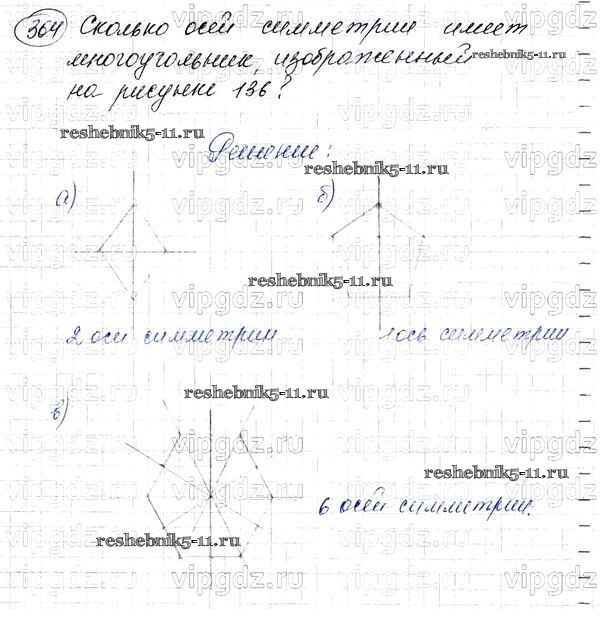 364 Сколько осей симметрии имеет
многоугольник, изображенный reshebnik5-11.ru
на рисунке 136?
reshebnik5-11.ru
Решение:
reshebnik5-11.ru
а) б)
reshebnik5-11.ru
vipgdz.ru
2 оси симметрии 1 ось симметрии
reshebnik5-11.ru
в)
reshebnik5-11.ru
6 осей симметрии.
reshebnik5-11.ru
vipgdz.ru